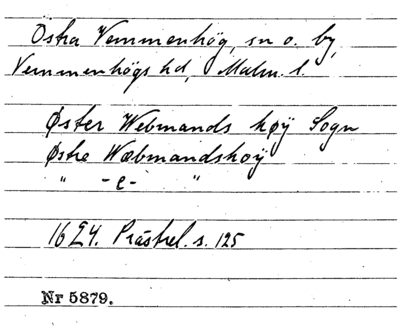 Östra Vemmenhög, sn o. by,
Vemmenhögs hd, Malm. l.
Øster Webmands høÿ Sogn
Østre Wæbmandshoÿ
" -e- "
1624. Prästrel. s. 125
Nr 5879.